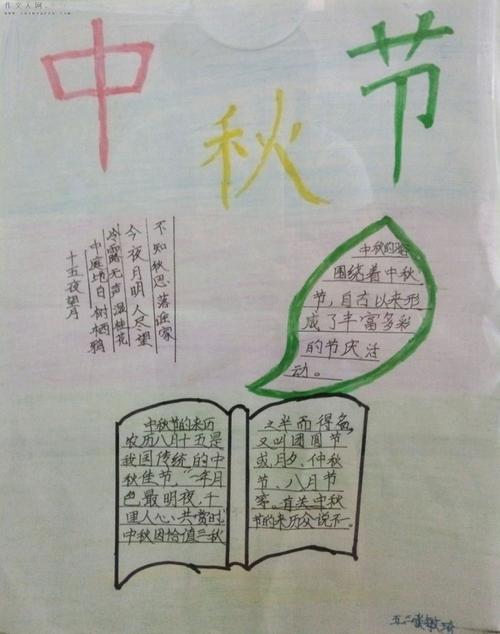 作文人网
中
秋
节
十五夜望月
中庭地白树栖鸦
冷露无声湿桂花
今夜月明人尽望
不知秋思落谁家
中秋的
围绕着中秋
节,自古以来形
成了丰富多彩
的节庆活
动。
中秋节的来历
农历八月十五是
我国传统的中
秋佳节,"一年月
色最明夜,千
里人心共赏时"
中秋因恰值三秋
之半而得名,
又叫团圆节
或月夕、仲秋
节、八月节
等。有关中秋
节的来历众说不一。
五二